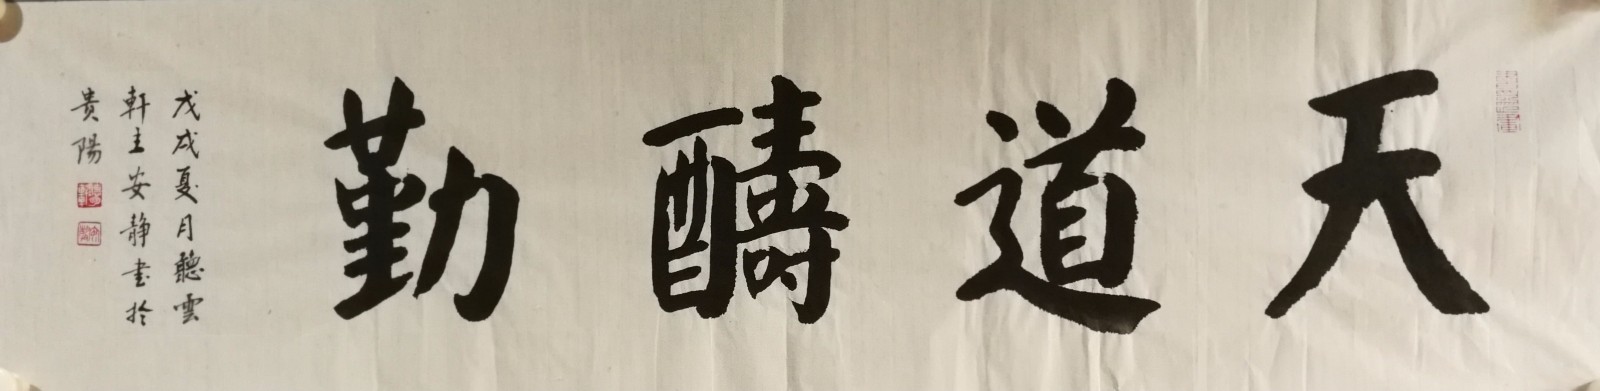 天道醻勤
戊戌夏月聽雲
軒主安静书於
贵陽